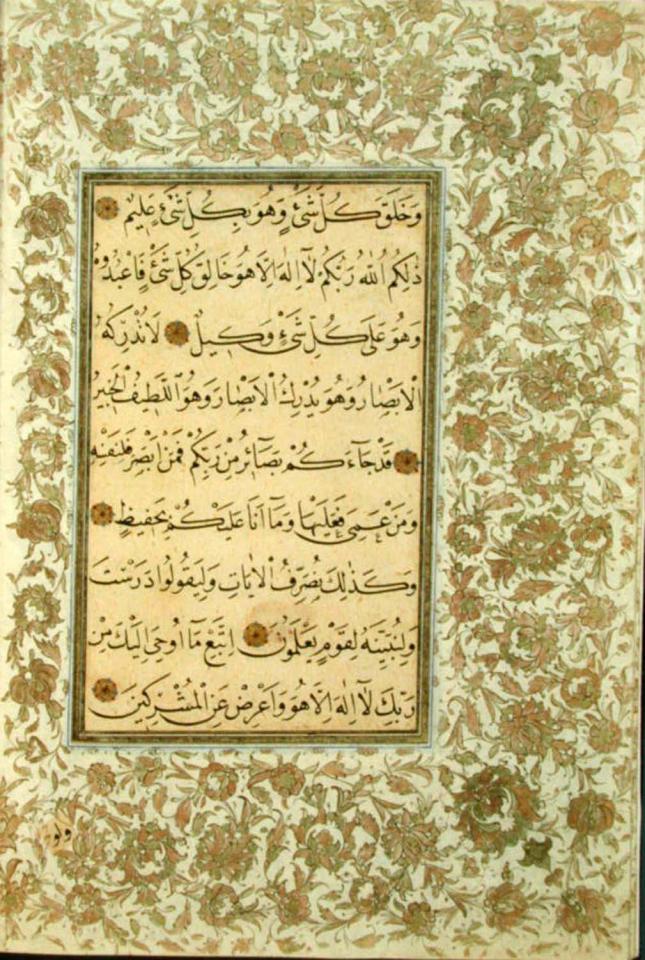 وَخَلَقَ كُلَّ شَیْءٍ وَهُوَ بِكُلِّ شَیْءٍ عَلِيمٌ
ذٰلِكُمُ اللّٰهُ رَبُّكُمْ لَآ اِلٰهَ اِلَّا هُوَ خَالِقُ كُلِّ شَیْءٍ فَاعْبُدُوهُ
وَهُوَ عَلٰى كُلِّ شَیْءٍ وَكِيلٌ لَا تُدْرِكُهُ
الْاَبْصَارُ وَهُوَ يُدْرِكُ الْاَبْصَارَ وَهُوَ اللَّطِيفُ الْخَبِيرُ
قَدْ جَآءَكُمْ بَصَآئِرُ مِنْ رَبِّكُمْ فَمَنْ اَبْصَرَ فَلِنَفْسِهِ
وَمَنْ عَمِیَ فَعَلَيْهَا وَمَآ اَنَا عَلَيْكُمْ بِحَفِيظٍ
وَكَذٰلِكَ نُصَرِّفُ الْاٰيَاتِ وَلِيَقُولُوا دَرَسْتَ
وَلِنُبَيِّنَهُ لِقَوْمٍ يَعْلَمُونَ اِتَّبِعْ مَآ اُوحِیَ اِلَيْكَ مِنْ
رَبِّكَ لَآ اِلٰهَ اِلَّا هُوَ وَاَعْرِضْ عَنِ الْمُشْرِكِينَ
ولو